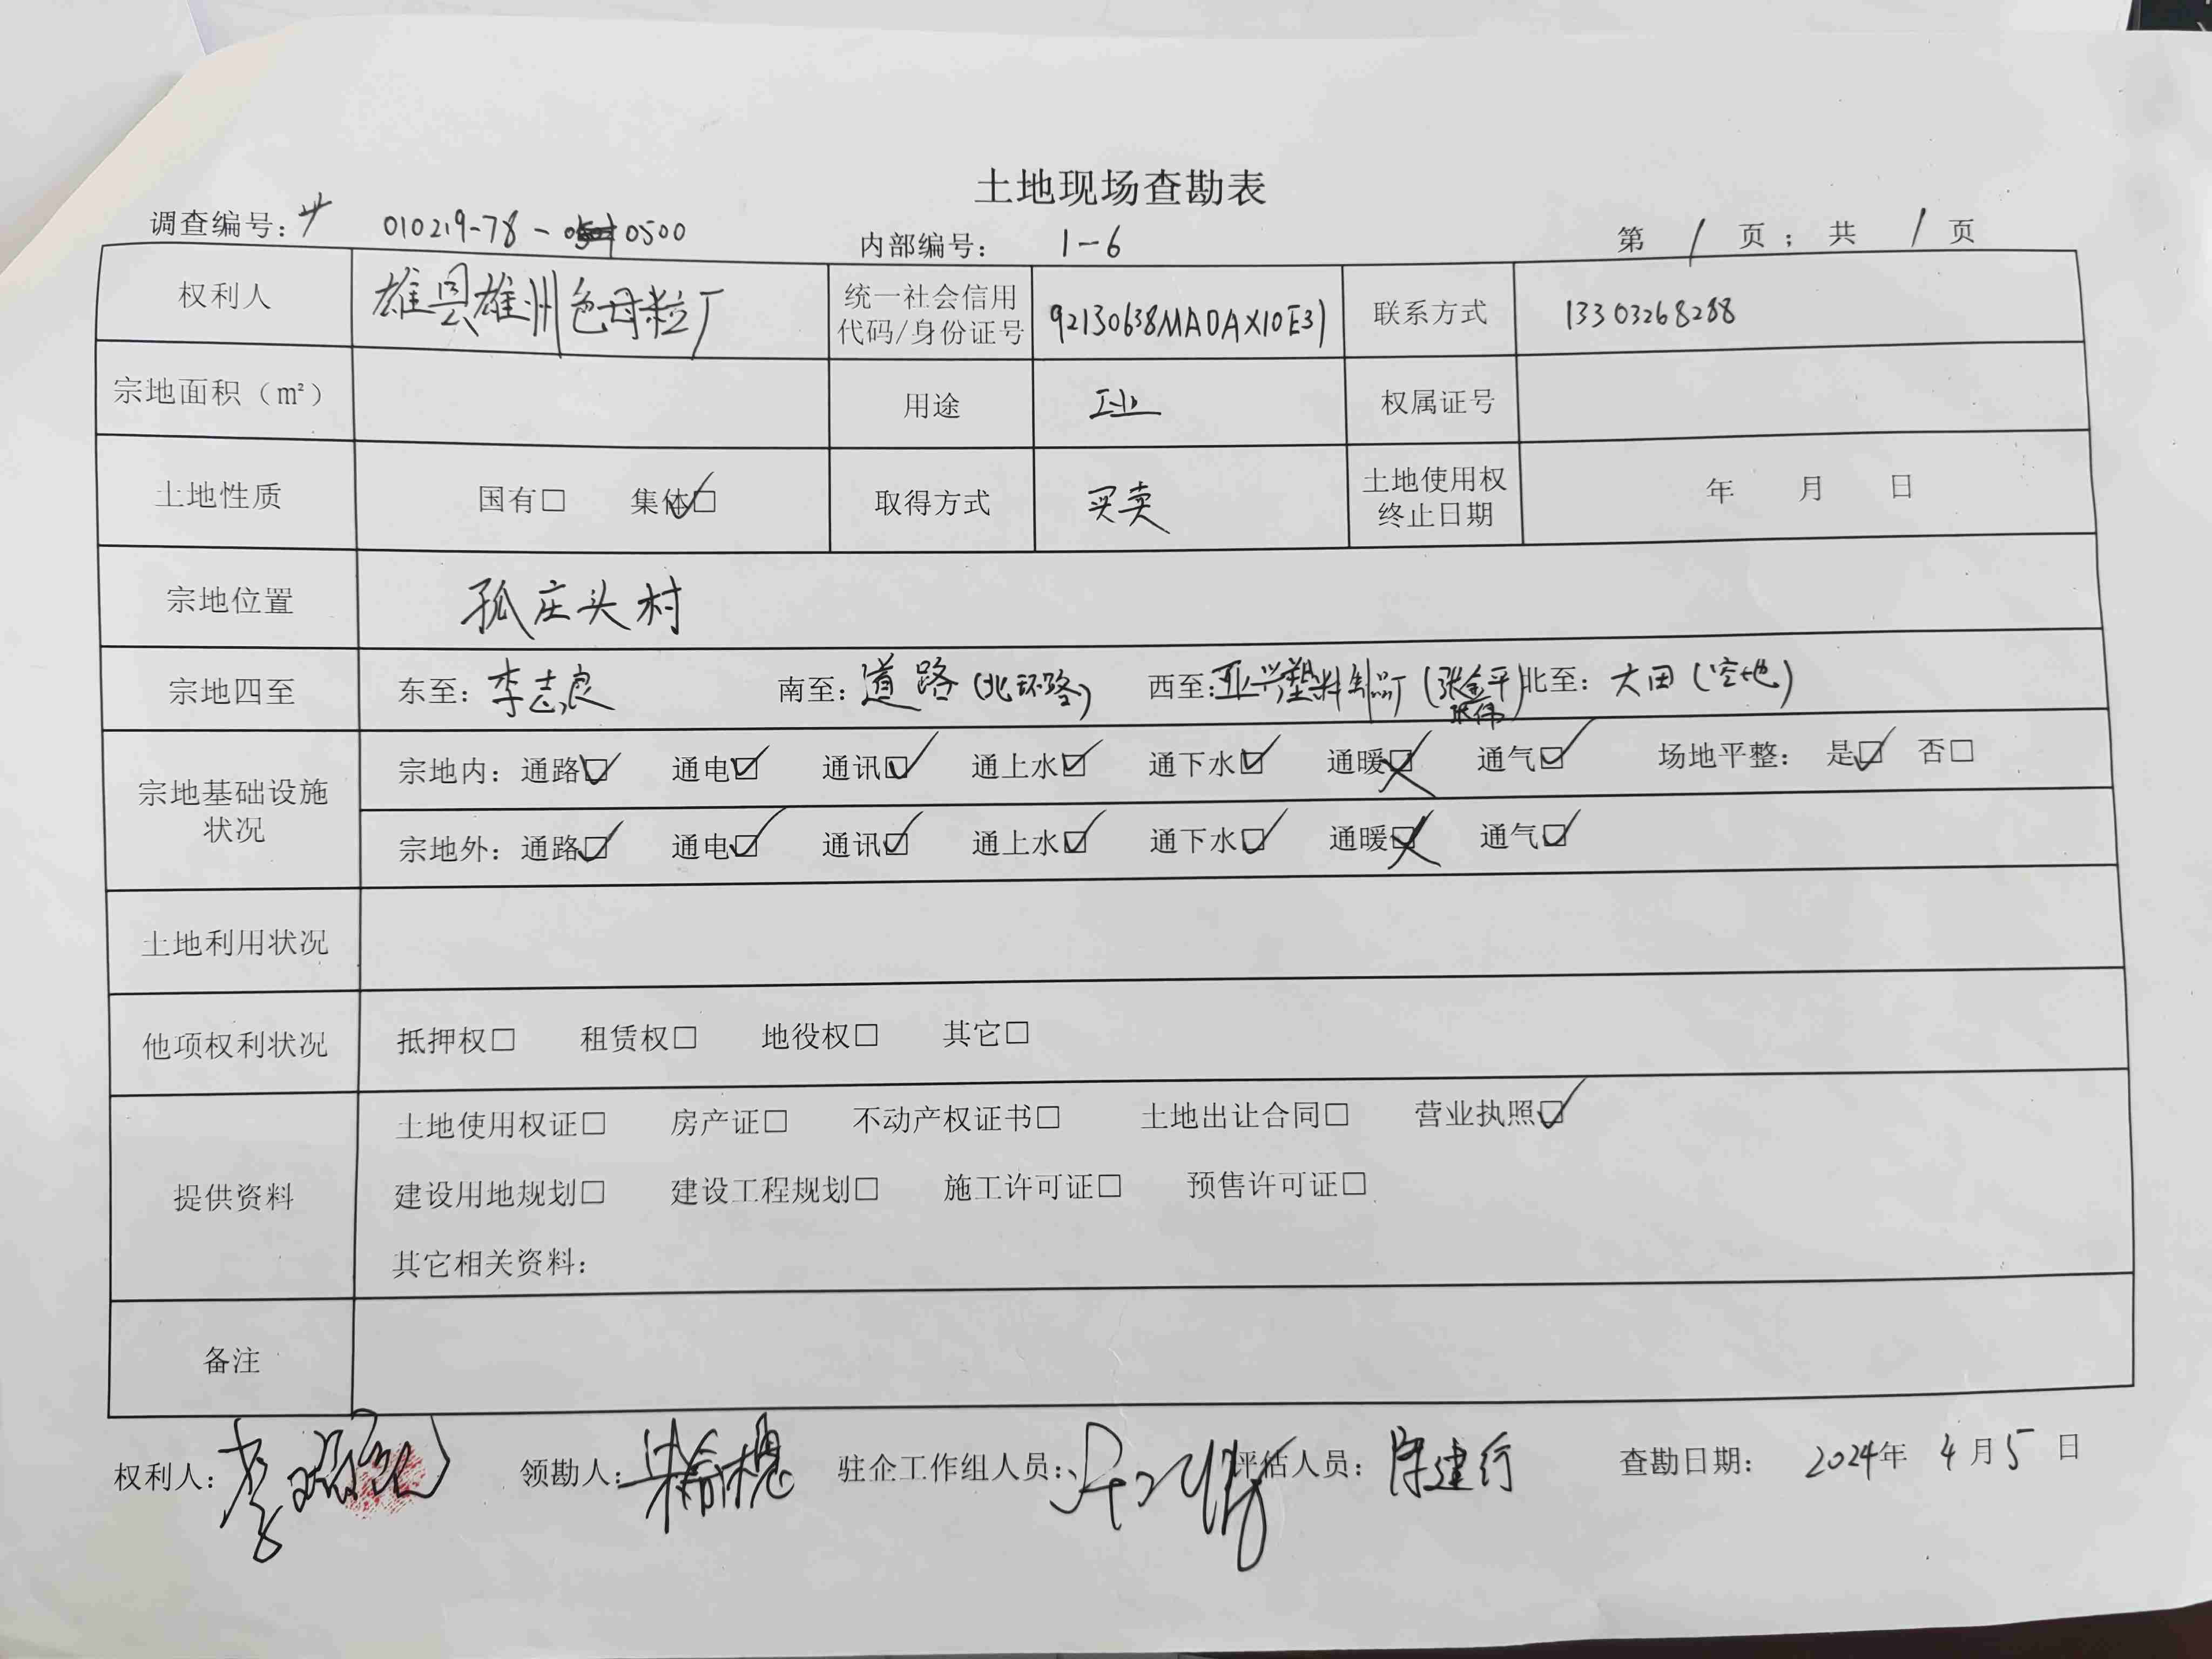 土地现场查勘表
调查编号: 010219-78-0500 内部编号: 1-6 第 1 页；共 1 页
权利人 雄县雄州色母粒厂 统一社会信用代码/身份证号 92130638MA0AX10E31 联系方式 13303268288
宗地面积（m²） 用途 工业 权属证号
土地性质 国有□ 集体☑ 取得方式 买卖 土地使用权终止日期 年 月 日
宗地位置 孤庄头村
宗地四至 东至: 李志良 南至: 道路(北环路) 西至: 亚兴塑料制品厂(张金平 张伟) 北至: 大田(空地)
宗地基础设施状况 宗地内: 通路☑ 通电☑ 通讯☑ 通上水☑ 通下水☑ 通暖☒ 通气☑ 场地平整: 是☑ 否□
宗地外: 通路☑ 通电☑ 通讯☑ 通上水☑ 通下水☑ 通暖☒ 通气☑
土地利用状况
他项权利状况 抵押权□ 租赁权□ 地役权□ 其它□
提供资料 土地使用权证□ 房产证□ 不动产权证书□ 土地出让合同□ 营业执照☑
建设用地规划□ 建设工程规划□ 施工许可证□ 预售许可证□
其它相关资料:
备注
权利人: 领勘人: 驻企工作组人员: 评估人员: 陈建行 查勘日期: 2024年 4月5日